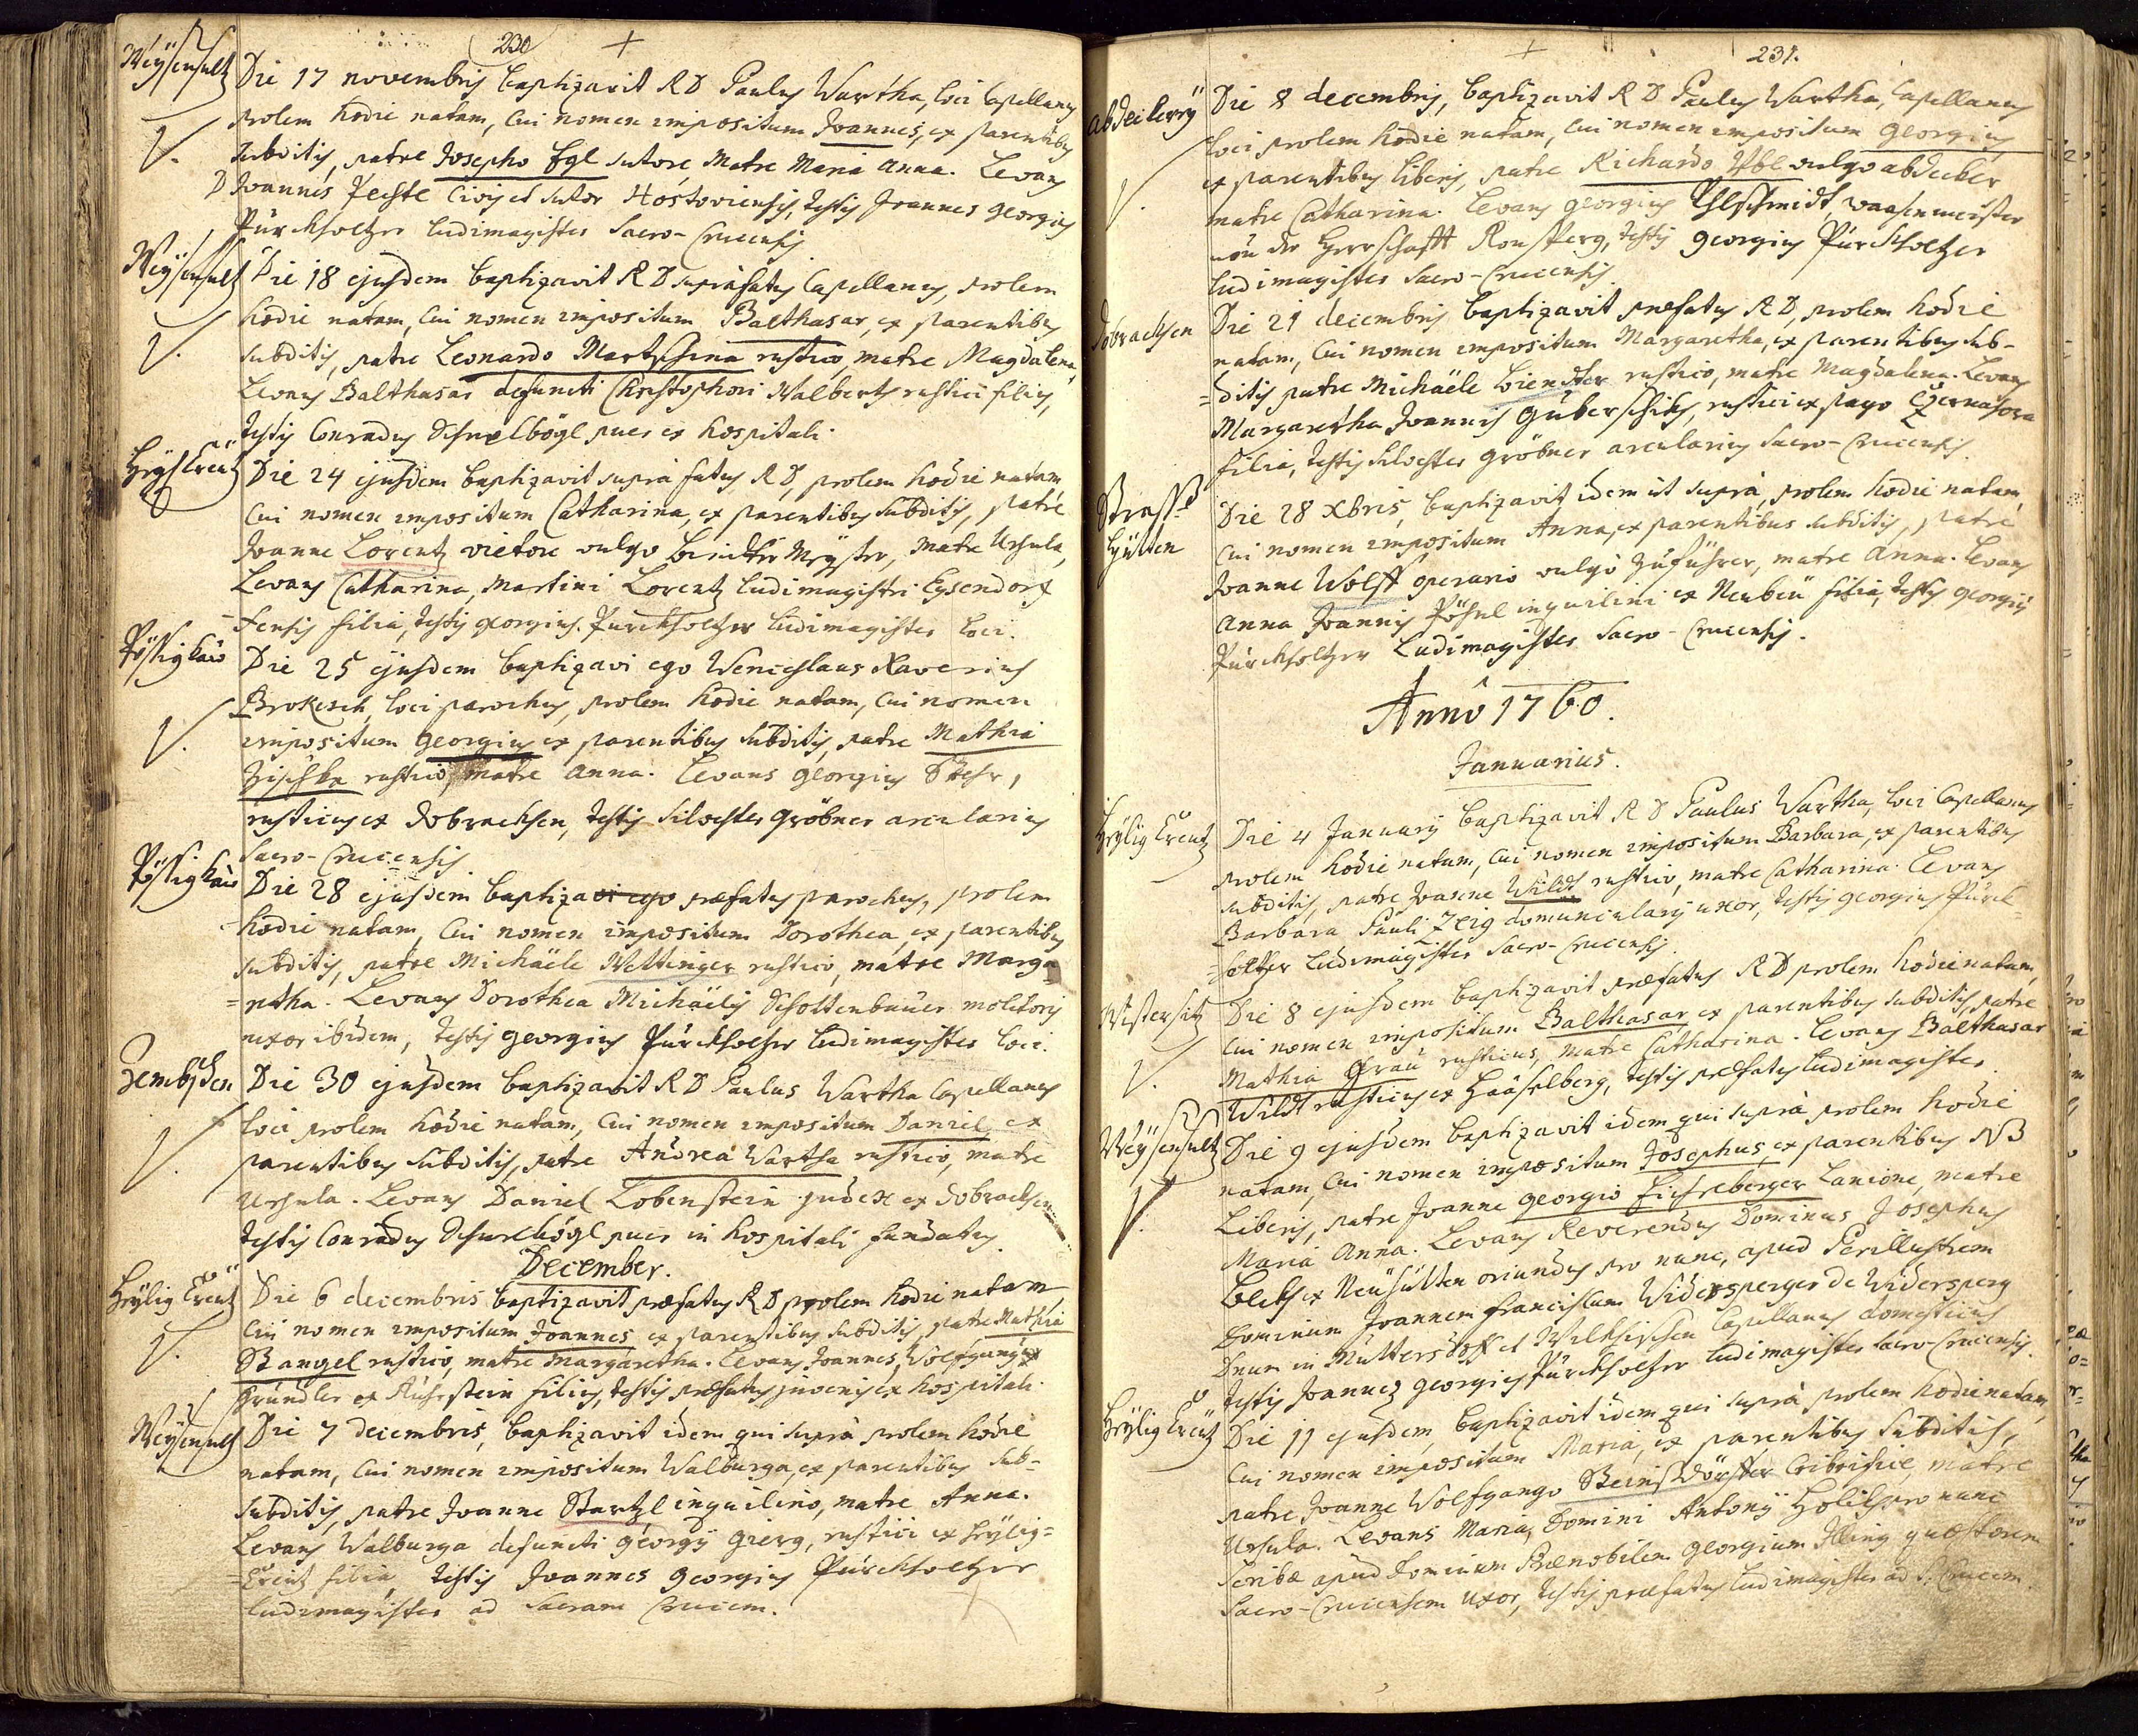 230
Weÿsensultz
Die 17 novembris baptizavit R D Paulus Wartha, loci Capellanus
prolem hodie natam, cui nomen impositum Joannes, ex parentibus
subditis, patre Josepho Egl sutore, Matre Maria Anna. Levans
D Joannes Peste Civis et sutor Hostoviensis, testis Joannes Georgius
Pürckholtzer Ludimagister Sacro-Crucensis
Weÿsensultz
Die 18 ejusdem baptizavit R D suprafatus Capellanus, prolem
hodie natam, cui nomen impositum Balthasar, ex parentibus
subditis, patre Leonardo Martschina rustico, matre Magdalena,
Levans Balthasar defuncti Christophori Walberts rustici filius,
testis Conradus Schnelbögl puer ex hospitali.
Heÿl Creütz
Die 24 ejusdem baptizavit supra fatus R D, prolem hodie natam
cui nomen impositum Catharina, ex parentibus subditis, patre
Joanne Lorentz vietore vulgo Meÿster, Matre Ursula,
Levans Catharina, Martini Lorentz Ludimagistri Eysendorf
-fensis filia, testis Georgius Purckholtzer Ludimagister loci.
Pössigkau
Die 25 ejusdem baptizavi ego Wenceslaus Xaverius
Brokesch, loci parochus, prolem hodie natam, cui nomen
impositum Georgius ex parentibus subditis, patre Mathia
Zischka rustico, matre Anna. Levans Georgius
rusticus ex Dobrachsen, testis Silvester Gröbner arcularius
Sacro-Crucensis
Pössigkau
Die 28 ejusdem baptizavi ego præfatus parochus, prolem
hodie natam, cui nomen impositum Dorothea, ex parentibus
subditis, patre Michäele Wettinger rustico, matre Marga
=retha. Levans Dorothea Michäelis Schottenbauer molitoris
uxor ibidem, testis Georgius Pürckholtzer Ludimagister loci.
Zembschen
Die 30 ejusdem baptizavit R D Paulus Wartha Capellanus
loci prolem hodie natam, cui nomen impositum Daniel ex
parentibus subditis, patre Andrea Wartha rustico, matre
Ursula. Levans Daniel Lobenstein judex ex Dobrachsen
testis Conradus Schnelbögl puer in hospitali fundatus
December.
Heÿlig Creütz
Die 6 decembris baptizavit præfatus R D prolem hodie natam
cui nomen impositum Joannes ex parentibus subditis, patre Mathia
Stangel rustico, matre Margaretha. Levans Joannes, Wolfgangi
Gründler ex filius, testis præfatus juvenis ex hospitali.
Weÿsensultz
Die 7 decembris, baptizavit idem qui supra prolem hodie
natam, cui nomen impositum Walburga, ex parentibus sub-
subditis, patre Joanne Startzl inquilino, matre Anna.
Levans Walburga defuncti Georgÿ Gierg, rustici ex Heÿlig=
=Creütz filia, testis Joannes Georgius Pürckholtzer
Ludimagister ad Sacram Crucem.
231.
Abdeckereÿ
Die 8 decembris, baptizavit R D Paulus Wartha, Capellanus
loci prolem hodie natam, cui nomen impositum Georgius
ex parentibus liberis, patre Richardo vulgo abdecker
matre Catharina. Levans Georgius waasenmeister
von der Herrschafft Ronsperg, testis Georgius Pürckholtzer
Ludimagister Sacro-Crucensis
Dobrachsen
Die 21 decembris baptizavit præfatus R D, prolem hodie
natam, cui nomen impositum Margaretha, ex parentibus sub-
=ditis patre Michäele rustico, matre Magdalena. Levans
Margaretha Joannis rustici ex pago Czernahora
filia, testis Silvester Gröbner arcularius Sacro-Crucensis.
Strass
hütten
Die 28 Xbris, baptizavit idem ut supra, prolem hodie natam
cui nomen impositum Anna, ex parentibus subditis, patre
Joanne Wolff operario vulgo Zuführer, matre Anna. Levans
Anna Joannis Pöhnl inquilini ex Neubeü filia, testis Georgius
Pürckholtzer Ludimagister Sacro-Crucensis.
Anno 1760.
Januarius.
Heÿlig Creütz
Die 4 Januarÿ baptizavit R D Paulus Wartha, loci Capellanus
prolem hodie natam, cui nomen impositum Barbara, ex parentibus
subditis, patre Joanne Wildt rustico, matre Catharina. Levans
Barbara Pauli Zeig domuncularÿ uxor, testis Georgius Pürck=
=holtzer Ludimagister Sacro-Crucensis.
Wistersitz
Die 8 ejusdem baptizavit præfatus R D prolem hodie natam,
cui nomen impositum Balthasar ex parentibus subditis, patre
Mathia Grau rusticus, matre Catharina. Levans Balthasar
Wildt rusticus ex Haäselberg, testis præfatus Ludimagister
Weÿsensultz
Die 9 ejusdem baptizavit idem qui supra prolem hodie
natam, cui nomen impositum Josephus, ex parentibus NB
Liberis, patre Joanne Georgio Fichtelberger Lanione, matre
Maria Anna. Levans Reverendus Dominus Josephus
ex Neühütten oriundus pro nunc, apud Perillustrem
Dominum Joannem Franciscum Widersperger de Widersperg
Dnum in Muttersdorff et Capellanus domesticus
testis Joannes Georgius Pürckholtzer Ludimagister Sacro-Crucensis.
Heÿlig Creütz
Die 11 ejusdem, baptizavit idem qui supra prolem hodie natam,
cui nomen impositum Maria, ex parentibus subditis,
patre Joanne Wolfgango Steinsdörffer Cribrifice, matre
Ursula. Levans Maria, Domini Antonÿ pro nunc
scribæ apud Dominum Prænobilem Georgium Illing quæstorem
Sacro-Crucensem uxor, testis præfatus Ludimagister ad S. Crucem